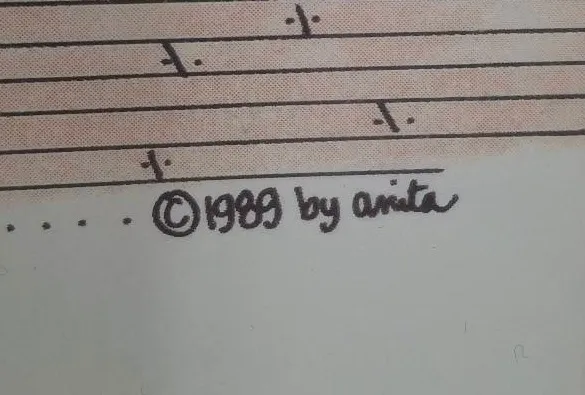 . . . . ©1989 by anita